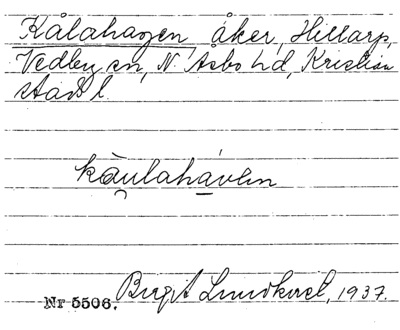 Kålahagen åker, Hillarp,
Vedby sn, N. Åsbo hd, Kristian
stads l.
kàulahávên
Nr 5506. Birgit Lundkvist, 1937.